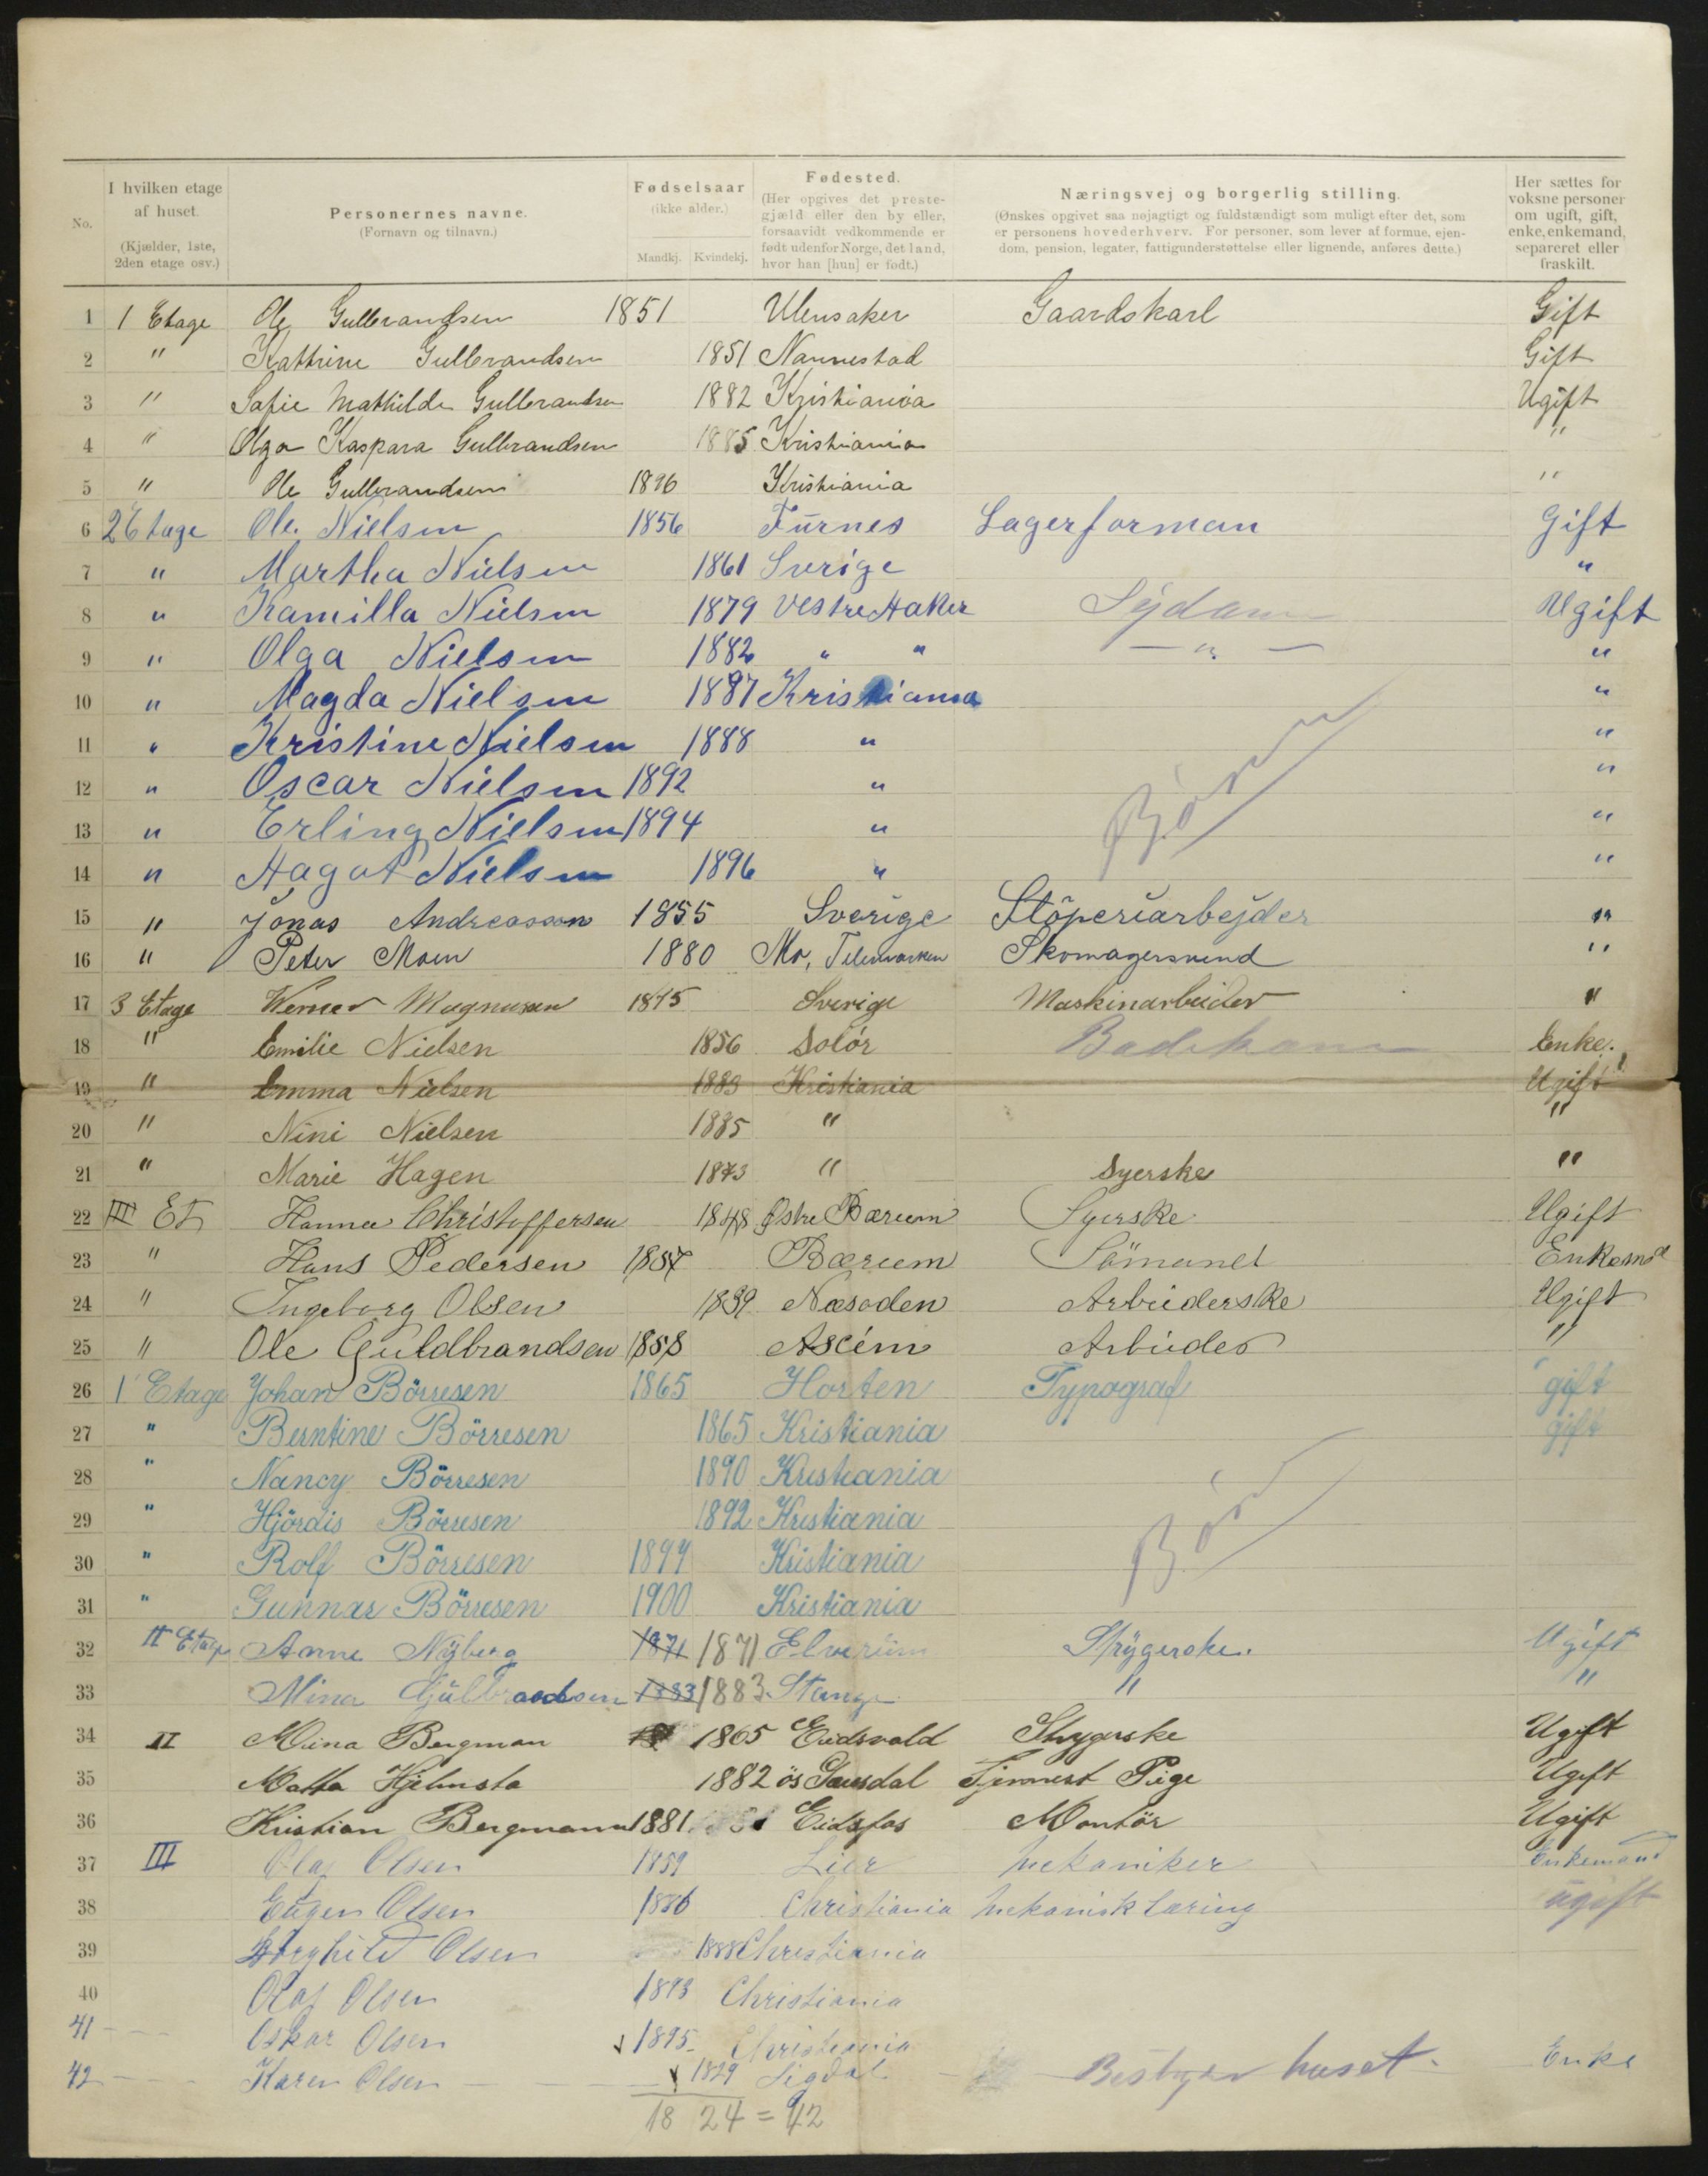 No.
I hvilken etage af huset. (Kjælder, 1ste, 2den etage osv.)
Personernes navne. (Fornavn og tilnavn.)
Fødselsaar (ikke alder.) Mandkj. Kvindekj.
Fødested. (Her opgives det prestegjæld eller den by eller, forsaavidt vedkommende er født udenfor Norge, det land, hvor han [hun] er født.)
Næringsvej og borgerlig stilling. (Ønskes opgivet saa nøjagtigt og fuldstændigt som muligt efter det, som er personens hovederhverv. For personer, som lever af formue, ejendom, pension, legater, fattigunderstøttelse eller lignende, anføres dette.)
Her sættes for voksne personer om ugift, gift, enke, enkemand, separeret eller fraskilt.
1 1 Etage Ole Gulbrandsen 1851 Ulensaker Gaardskarl Gift
2 " Kathrine Gulbrandsen 1851 Nannestad Gift
3 " Sofie Mathilde Gulbrandsen 1882 Kristiania Ugift
4 " Olga Kaspara Gulbrandsen 1885 Kristiania "
5 " Ole Gulbrandsen 1896 Kristiania "
6 2 Etage Ole Nielsen 1856 Furnes Lagerforman Gift
7 " Martha Nielsen 1861 Sverige "
8 " Kamilla Nielsen 1879 Vestre Haker Sydame Ugift
9 " Olga Nielsen 1882 " " — " — "
10 " Magda Nielsen 1887 Kristiania "
11 " Kristine Nielsen 1888 " "
12 " Oscar Nielsen 1892 " Børn "
13 " Erling Nielsen 1894 " "
14 " Hagot Nielsen 1896 " "
15 " Jonas Andreasson 1855 Sverige Støperiarbejder "
16 " Peter Moen 1880 Mo, Telemarken Skomagersvend "
17 3 Etage Werner Magnusen 1845 Sverige Maskinarbeider "
18 " Emilie Nielsen 1856 Solör Badekone Enke.
19 " Emma Nielsen 1883 Kristiania Ugift
20 " Nini Nielsen 1885 " "
21 " Marie Hagen 1873 " Syerske "
22 III Et Hanna Christoffersen 1848 Østre Bærum Syerske Ugift
23 " Hans Pedersen 1857 Bærum Sömand Enkemd
24 " Ingeborg Olsen 1839 Næsoden Arbeiderske Ugift
25 " Ole Guldbrandsen 1858 Arbeider "
26 1 Etage Johan Börresen 1865 Horten Typograf gift
27 " Berntine Börresen 1865 Kristiania gift
28 " Nancy Börresen 1890 Kristiania
29 " Hjördis Börresen 1892 Kristiania
30 " Rolf Börresen 1897 Kristiania Børn
31 " Gunnar Börresen 1900 Kristiania
32 II Etage Anne Nyberg 1871 1871 Elverum Strygerske. Ugift
33 Mina Gulbrandsen 1883 1883 Stange " "
34 II Mina Bergman 1865 Eidsvold Strygerske Ugift
35 Hjelmsta 1882 ös Gausdal Tjennest Pige Ugift
36 Kristian Bergmann 1881 Eidsfos Montör Ugift
37 III Olaf Olsen 1859 Lier Mekaniker Enkemand
38 Eugen Olsen 1886 Christiania Mekanisk læring ugift
39 Borghild Olsen 1888 Christiania
40 Olaf Olsen 1893 Christiania
41 Oskar Olsen 1895 Christiania
42 Karen Olsen 1829 Sigdal Bestyrer huset. Enke
18 24 = 42